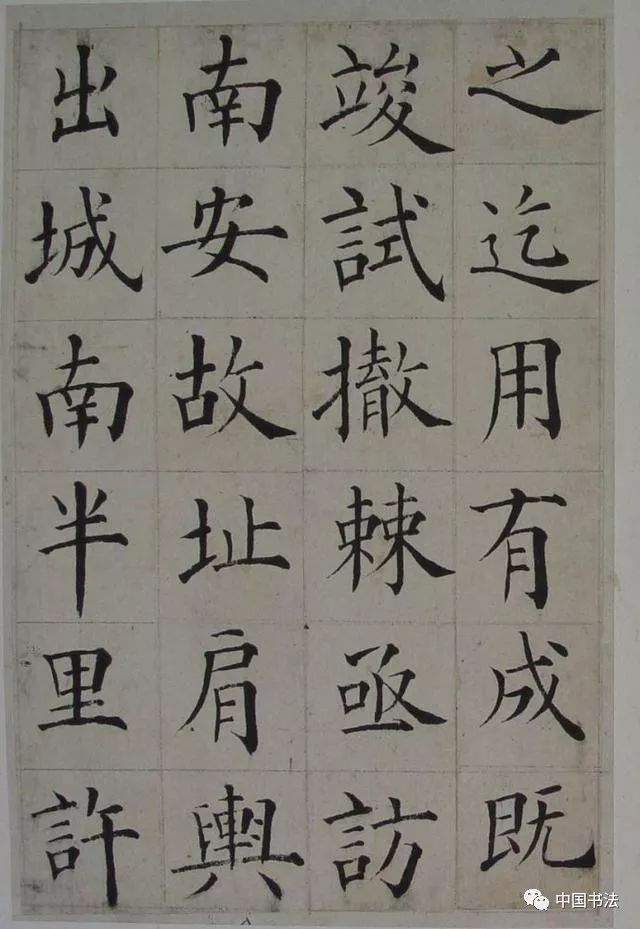 之迄用有成既
竣試撤棘亟訪
南安故址肩輿
出城南半里許
中国书法